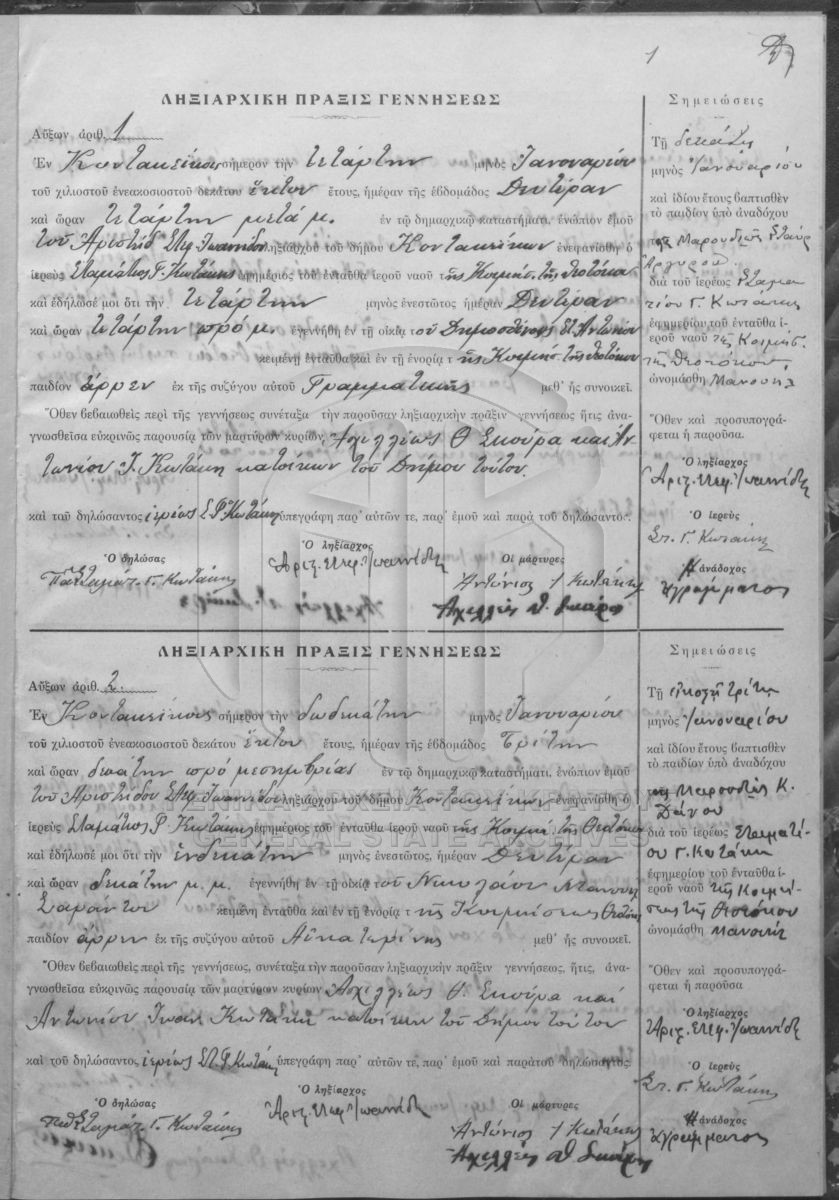 1
ΛΗΞΙΑΡΧΙΚΗ ΠΡΑΞΙΣ ΓΕΝΝΗΣΕΩΣ
Αὔξων ἀριθ. 1
Ἐν Κοντακείκοις σήμερον τὴν τετάρτην μηνὸς Ἰανουαρίου
τοῦ χιλιοστοῦ ἐνεακοσιοστοῦ δεκάτου ἕκτου ἔτους, ἡμέραν τῆς ἑβδομάδος Δευτέραν
καὶ ὥραν τετάρτην μετὰ μ. ἐν τῷ δημαρχικῷ καταστήματι, ἐνώπιον ἐμοῦ
τοῦ Ἀριστείδ. Στεφ. Ἰωαννίδου ληξιάρχου τοῦ δήμου Κοντακείκων ἐνεφανίσθη ὁ
ἱερεὺς Σταμάτιος Γ. Κωτάκης ἐφημέριος τοῦ ἐνταῦθα ἱεροῦ ναοῦ τῆς Κοιμήσ. τῆς Θεοτόκου
καὶ ἐδήλωσέ μοι ὅτι τὴν τετάρτην μηνὸς ἐνεστῶτος ἡμέραν Δευτέραν
καὶ ὥραν τετάρτην πρὸ μ. ἐγεννήθη ἐν τῇ οἰκίᾳ τοῦ Δημοσθένους Στ. Ἀντωνίου
κειμένῃ ἐνταῦθα καὶ ἐν τῇ ἐνορίᾳ τῆς Κοιμήσ. τῆς Θεοτόκου
παιδίον ἄρρεν ἐκ τῆς συζύγου αὐτοῦ Γραμματικῆς μεθ' ἧς συνοικεῖ.
Ὅθεν βεβαιωθεὶς περὶ τῆς γεννήσεως συνέταξα τὴν παροῦσαν ληξιαρχικὴν πρᾶξιν γεννήσεως ἥτις ἀνα-
γνωσθεῖσα εὐκρινῶς παρουσίᾳ τῶν μαρτύρων κυρίων Ἀχιλλέως Θ. Σκούρα καὶ Ἀν
τωνίου Ι. Κωτάκη κατοίκων τοῦ Δήμου τούτου
καὶ τοῦ δηλώσαντος ἱερέως Σ. Γ. Κωτάκη ὑπεγράφη παρ' αὐτῶν τε, παρ' ἐμοῦ καὶ παρὰ τοῦ δηλώσαντος.
Ὁ δηλώσας
Ὁ ληξίαρχος
Οἱ μάρτυρες
Παπᾶ Σταμάτ. Γ. Κωτάκης
Ἀριστ. Στεφ. Ἰωαννίδης
Ἀντώνιος Ι Κωτάκης
Ἀχιλλεὺς Θ. Σκούρας
Σημειώσεις
Τῇ δεκάτῃ
μηνὸς Ἰανουαρίου
καὶ ἰδίου ἔτους βαπτισθὲν
τὸ παιδίον ὑπὸ ἀναδόχου
τῆς Μαρουδιῶς Σταύρ
Ἀργυροῦ
διὰ τοῦ ἱερέως Σταμα
τίου Γ. Κωτάκη
ἐφημερίου τοῦ ἐνταῦθα ἱ-
εροῦ ναοῦ τῆς Κοιμήσ.
τῆς Θεοτόκου
ὠνομάσθη Μανουὴλ
Ὅθεν καὶ προσυπογρά-
φεται ἡ παροῦσα.
Ὁ ληξίαρχος
Ἀριστ. Στεφ. Ἰωαννίδης
Ὁ ἱερεὺς
Στ. Γ. Κωτάκης
Ἡ ἀνάδοχος
ἀγράμματος
ΛΗΞΙΑΡΧΙΚΗ ΠΡΑΞΙΣ ΓΕΝΝΗΣΕΩΣ
Αὔξων ἀριθ. 2
Ἐν Κοντακείκοις σήμερον τὴν δωδεκάτην μηνὸς Ἰανουαρίου
τοῦ χιλιοστοῦ ἐνεακοσιοστοῦ δεκάτου ἕκτου ἔτους, ἡμέραν τῆς ἑβδομάδος Τρίτην
καὶ ὥραν δεκάτην πρὸ μεσημβρίας ἐν τῷ δημαρχικῷ καταστήματι, ἐνώπιον ἐμοῦ
τοῦ Ἀριστείδου Στεφ. Ἰωαννίδου ληξιάρχου τοῦ δήμου Κοντακείκων ἐνεφανίσθη ὁ
ἱερεὺς Σταμάτιος Γ. Κωτάκης ἐφημέριος τοῦ ἐνταῦθα ἱεροῦ ναοῦ τῆς Κοιμήσ. τῆς Θεοτόκου
καὶ ἐδήλωσέ μοι ὅτι τὴν ἑνδεκάτην μηνὸς ἐνεστῶτος, ἡμέραν Δευτέραν
καὶ ὥραν δεκάτην μ.μ. ἐγεννήθη ἐν τῇ οἰκίᾳ τοῦ Νικολάου Μανουὴλ
Σαράντου κειμένῃ ἐνταῦθα καὶ ἐν τῇ ἐνορίᾳ τῆς Κοιμήσεως Θεοτόκου
παιδίον ἄρρεν ἐκ τῆς συζύγου αὐτοῦ Αἰκατερίνης μεθ' ἧς συνοικεῖ.
Ὅθεν βεβαιωθεὶς περὶ τῆς γεννήσεως, συνέταξα τὴν παροῦσαν ληξιαρχικὴν πρᾶξιν γεννήσεως, ἥτις, ἀνα-
γνωσθεῖσα εὐκρινῶς παρουσίᾳ τῶν μαρτύρων κυρίων Ἀχιλλέως Θ. Σκούρα καὶ
Ἀντωνίου Ἰωάν. Κωτάκη κατοίκων τοῦ Δήμου τούτου
καὶ τοῦ δηλώσαντος ἱερέως Στ. Γ. Κωτάκη ὑπεγράφη παρ' αὐτῶν τε, παρ' ἐμοῦ καὶ παρὰ τοῦ δηλώσαντος.
Ὁ δηλώσας
Ὁ ληξίαρχος
Οἱ μάρτυρες
Παπ. Σταμάτ. Γ. Κωτάκης
Ἀριστ. Στεφ. Ἰωαννίδης
Ἀντώνιος Ι Κωτάκης
Ἀχιλλεὺς Θ. Σκούρας
Σημειώσεις
Τῇ εἰκοστῇ τρίτῃ
μηνὸς Ἰανουαρίου
καὶ ἰδίου ἔτους βαπτισθὲν
τὸ παιδίον ὑπὸ ἀναδόχου
τῆς Μαρουδιῶς Κ.
Δάνου
διὰ τοῦ ἱερέως Σταματί
ου Γ. Κωτάκη
ἐφημερίου τοῦ ἐνταῦθα ἱ-
εροῦ ναοῦ τῆς Κοιμή
σεως τῆς Θεοτόκου
ὠνομάσθη Μανουὴλ
Ὅθεν καὶ προσυπογρά-
φεται ἡ παροῦσα
Ὁ ληξίαρχος
Ἀριστ. Στεφ. Ἰωαννίδης
Ὁ ἱερεὺς
Στ. Γ. Κωτάκης
Ἡ ἀνάδοχος
ἀγράμματος
ΓΕΝΙΚΑ ΑΡΧΕΙΑ ΤΟΥ ΚΡΑΤΟΥΣ
GENERAL STATE ARCHIVES